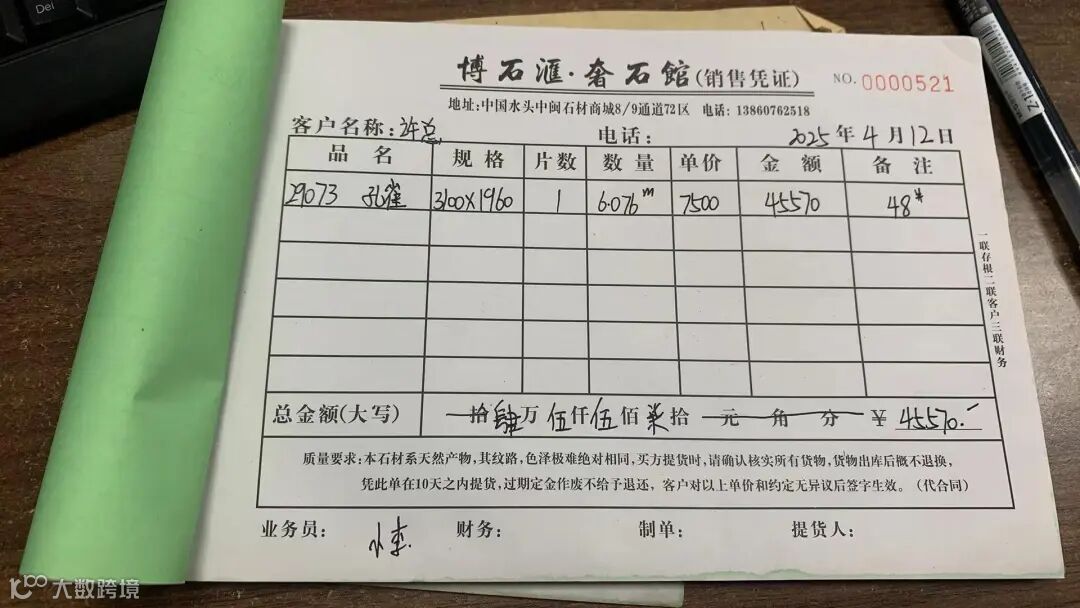 Del
博石滙·奢石館(销售凭证) NO.0000521
地址:中国水头中闽石材商城8/9通道72区 电话: 13860762518
客户名称:许总 电话: 2025年4月12日
品名 规格 片数 数量 单价 金额 备注
29073 孔雀 3100×1960 1 6.076m 7500 45570 48#
一联存根二联客户三联财务
总金额(大写) 拾肆万伍仟伍佰柒拾元角分 ¥45570.-
质量要求:本石材系天然产物,其纹路,色泽极难绝对相同,买方提货时,请确认核实所有货物,货物出库后概不退换,
凭此单在10天之内提货,过期定金作废不给予退还,客户对以上单价和约定无异议后签字生效。(代合同)
业务员: 小李 财务: 制单: 提货人:
大数跨境